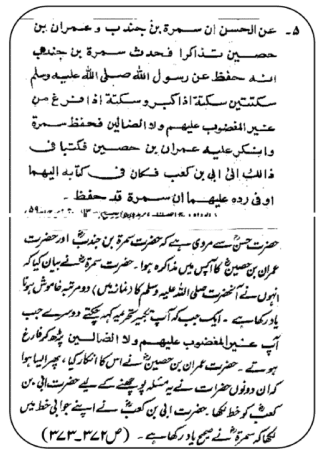 ۵۔ عن الحسن ان سمرة بن جندب و عمران بن
حصين تذاكرا فحدث سمرة بن جندب
انه حفظ عن رسول الله صلى الله عليه وسلم
سكتتين سكتة اذا كبر و سكتة اذا فرغ من
غير المغضوب عليهم ولا الضالين فحفظ سمرة
وانكر عليه عمران بن حصين فكتبا فى
ذالك الى ابى بن كعب فكان فى كتابه اليهما
او فى رده عليهما ان سمرة قد حفظ ۔
حضرت حسنؒ سے مروی ہے کہ حضرت سمرۃ بن جندبؓ اور حضرت
عمران بن حصینؓ کا آپس میں مذاکرہ ہوا۔ حضرت سمرۃؓ نے بیان کیا کہ
انہوں نے آنحضرت صلی اللہ علیہ وسلم کا (نماز میں) دو مرتبہ خاموش ہونا
یاد رکھا ہے۔ ایک جب کہ آپ تکبیر تحریمہ کہہ چکتے دوسرے جب
آپ غیر المغضوب علیھم ولا الضالین پڑھ کر فارغ
ہوتے۔ حضرت عمران بن حصینؓ نے اس کا انکار کیا، پھر ایسا ہوا
کہ ان دونوں حضرات نے یہ مسئلہ پوچھنے کے لیے حضرت ابی بن
کعبؓ کو خط لکھا۔ حضرت ابی بن کعبؓ نے اپنے جوابی خط میں
لکھا کہ سمرۃؓ نے صحیح یاد رکھا ہے۔ (ص ۳۷۲-۳۷۳)